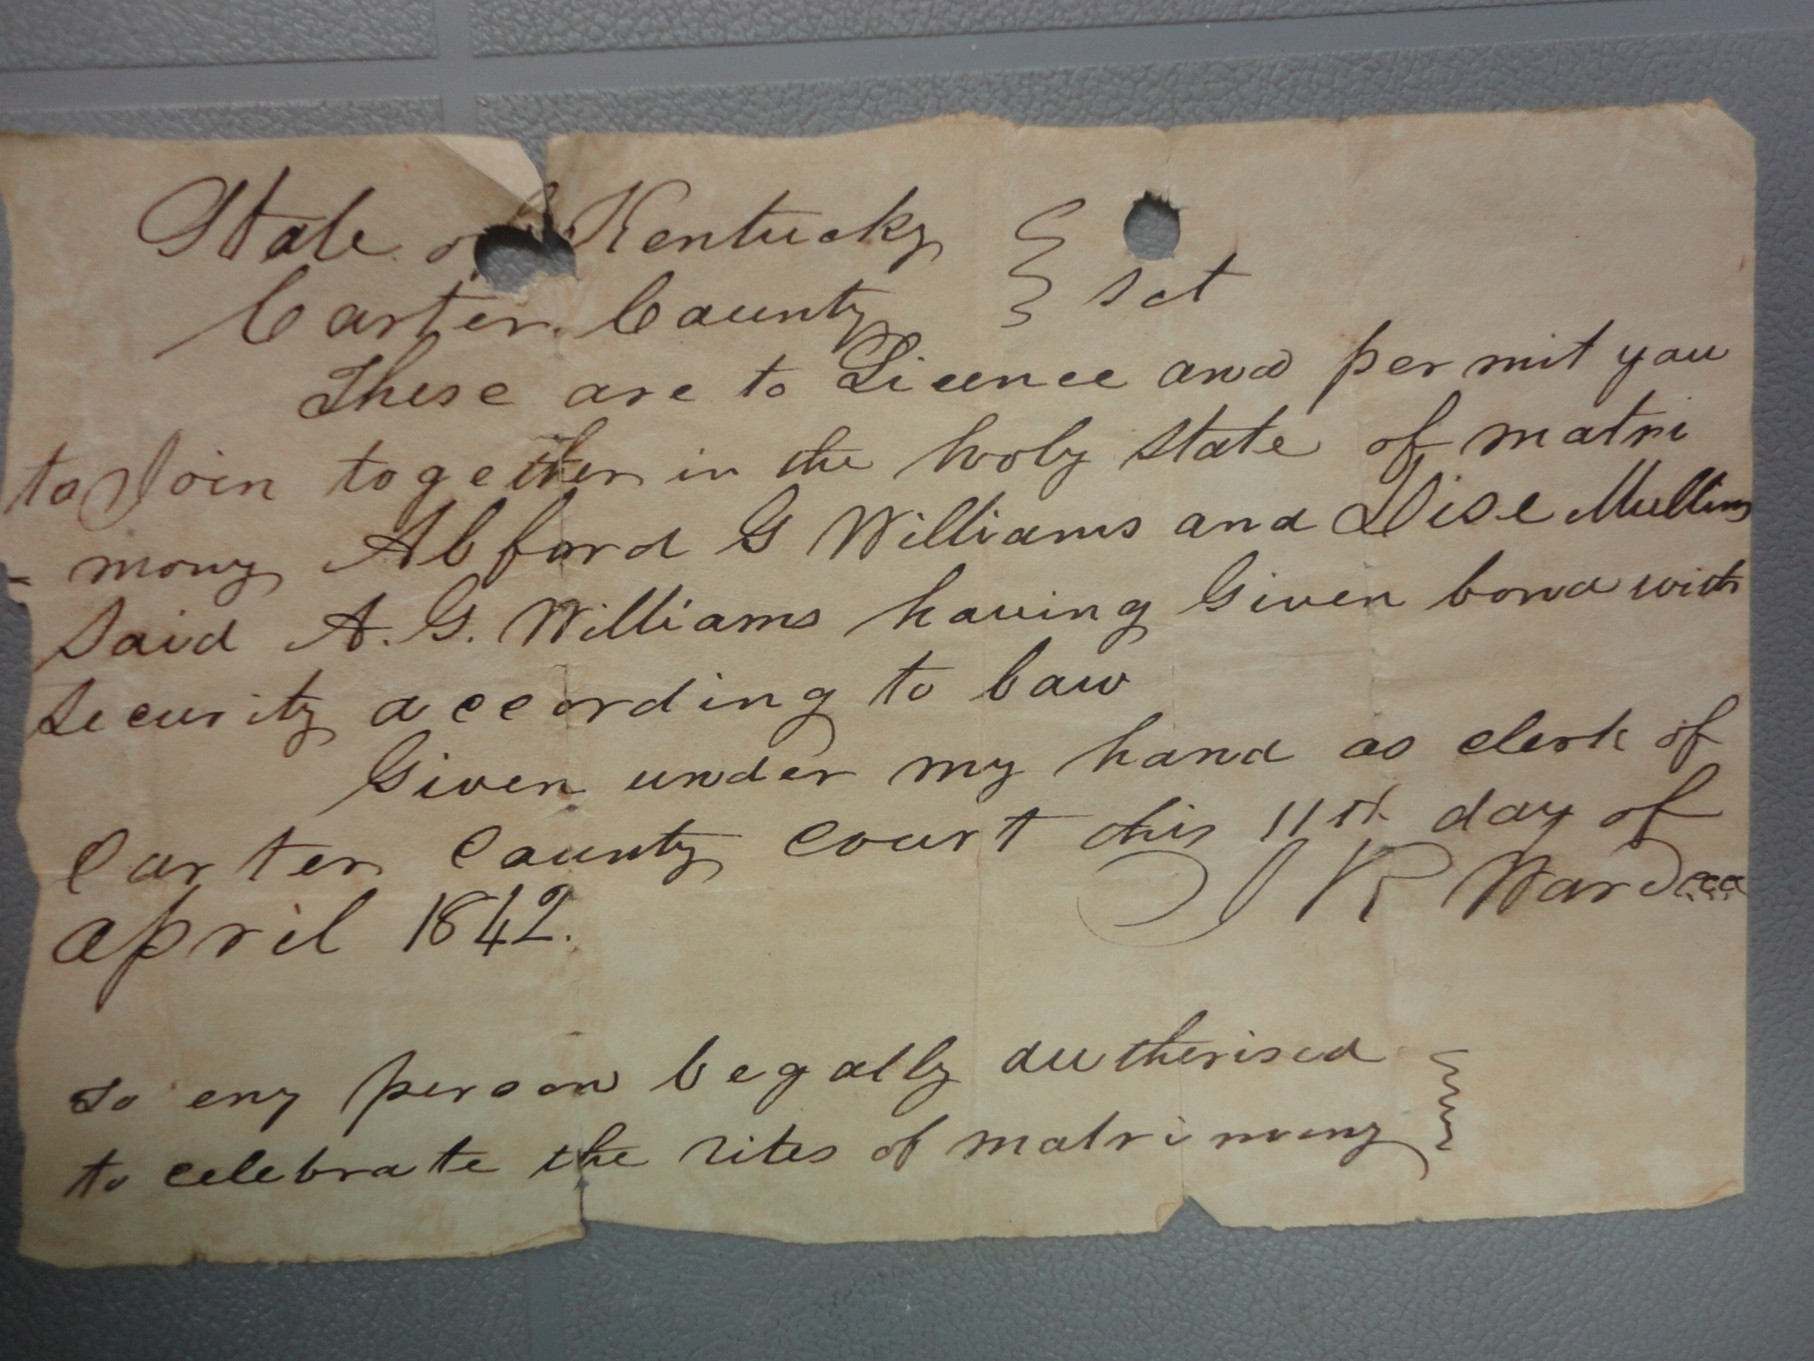 State of Kentucky
Carter County } Sct
These are to Licence and permit you
to Join together in the holy state of matri
= mony Abford G Williams and Dise Mullins
Said A. G. Williams having Given bond with
Security according to Law
Given under my hand as clerk of
Carter County Court this 11th day of
April 1842. J R Ward
To eny person Legally autherised
to celebrate the rites of matrimony }